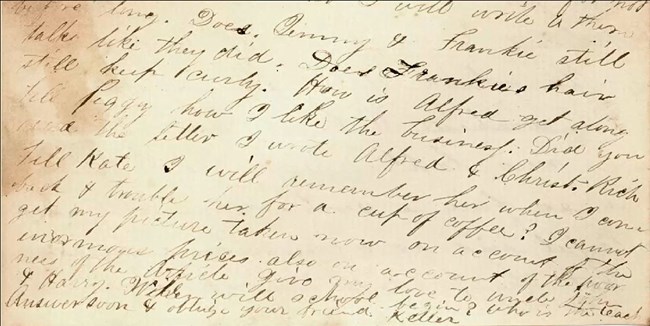 before long. I will write to them
talk like they did. Does Jenny & Frankie still
still keep curly. Does Frankies hair
tell Peggy how I like the business. How is Alfred get along
and the letter I wrote Alfred & Christ. Did you
Tell Kate I will remember her when I come
back & trouble her for a cup of coffee? I cannot
get my picture taken now on account of the
enormous prises also on account of the poor
ness of the article give my love to uncle
& Harry. When will school begin? who is the teach
Answer soon & oblige your friend Keller